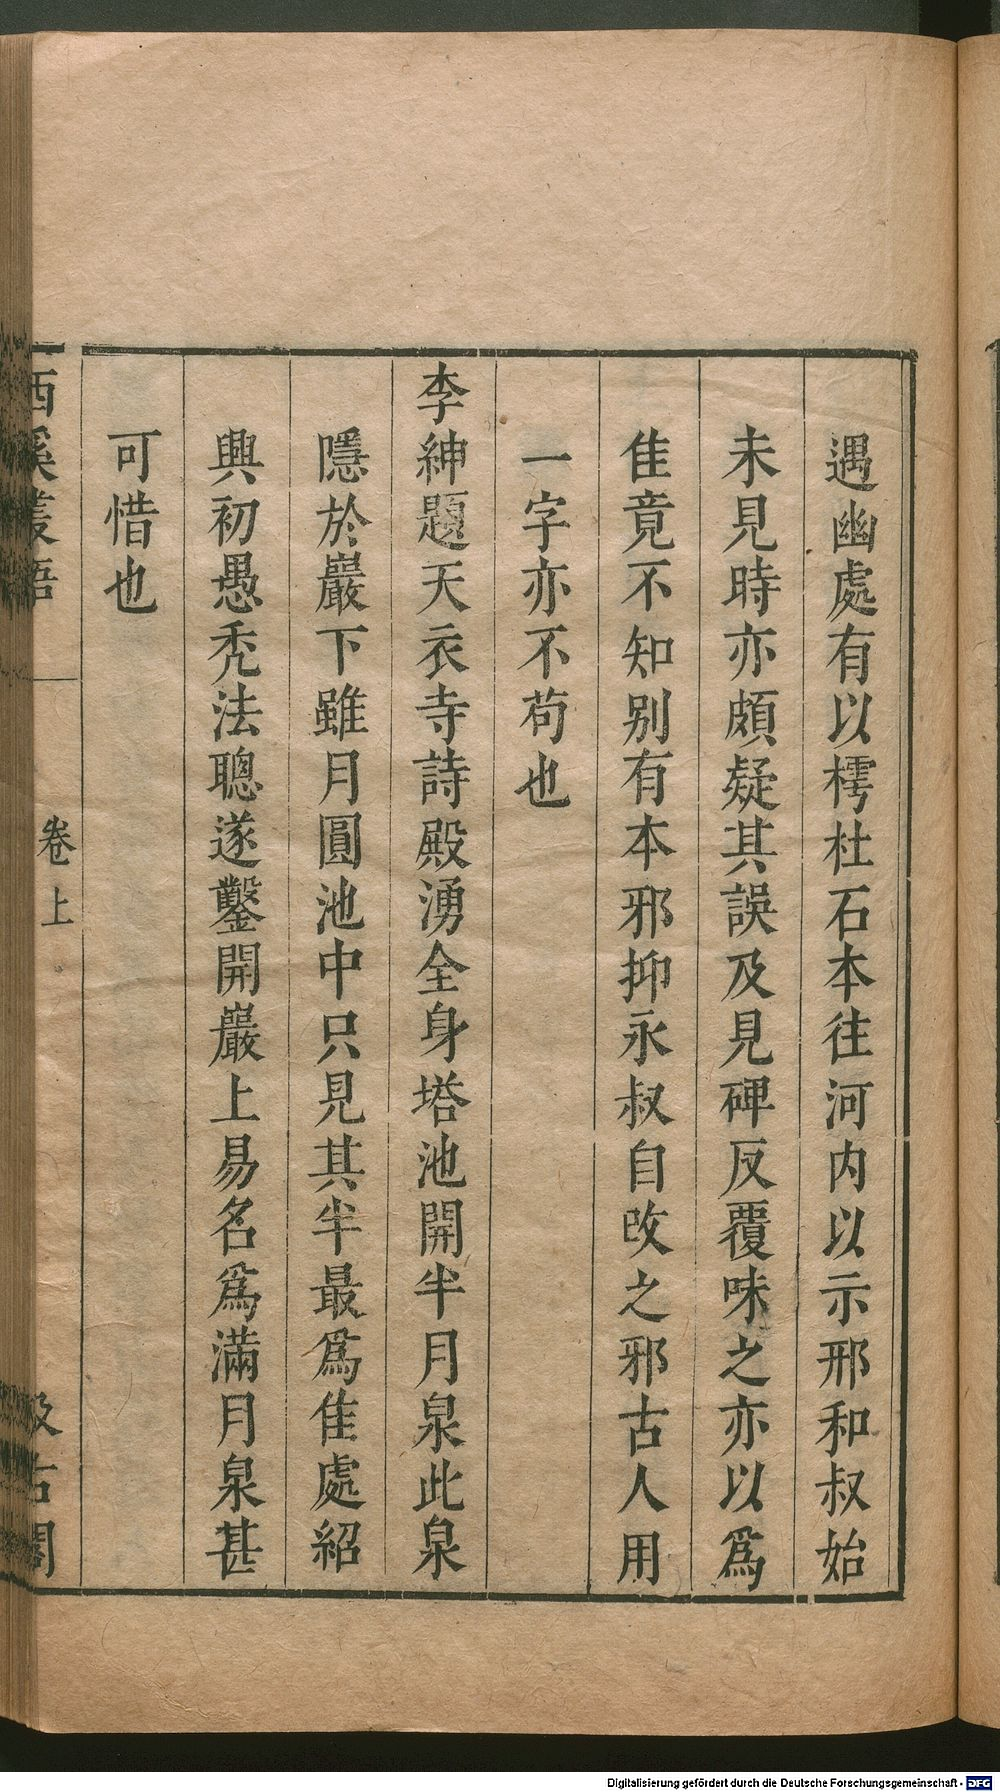 遇幽處有以樗杜石本往河内以示邢和叔始
未見時亦頗疑其誤及見碑反覆味之亦以爲
佳竟不知别有本邪抑永叔自改之邪古人用
一字亦不苟也
李紳題天衣寺詩殿湧全身塔池開半月泉此泉
隱於巖下雖月圓池中只見其半最爲佳處紹
興初愚禿法聰遂鑿開巖上易名爲滿月泉甚
可惜也
西溪叢語
卷上
汲古閣
Digitalisierung gefördert durch die Deutsche Forschungsgemeinschaft - DFG